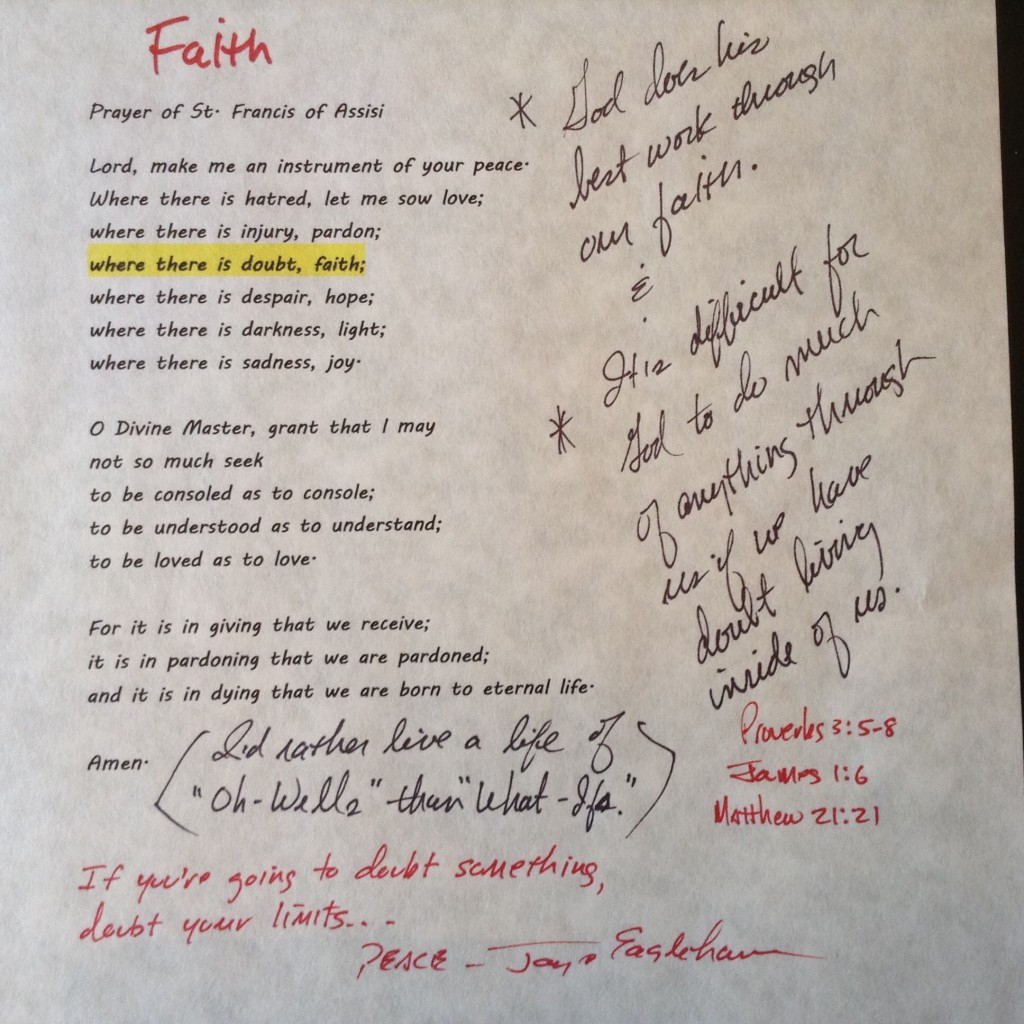 Faith
Prayer of St. Francis of Assisi
Lord, make me an instrument of your peace.
Where there is hatred, let me sow love;
where there is injury, pardon;
where there is doubt, faith;
where there is despair, hope;
where there is darkness, light;
where there is sadness, joy.
O Divine Master, grant that I may
not so much seek
to be consoled as to console;
to be understood as to understand;
to be loved as to love.
For it is in giving that we receive;
it is in pardoning that we are pardoned;
and it is in dying that we are born to eternal life.
Amen.
* God does his
best work through
our faith.
&
* It is difficult for
God to do much
of anything through
us if we have
doubt living
inside of us.
Proverbs 3:5-8
James 1:6
Matthew 21:21
(I'd rather live a life of
"Oh-Wells" than "What-Ifs.")
If you're going to doubt something,
doubt your limits...
PEACE -